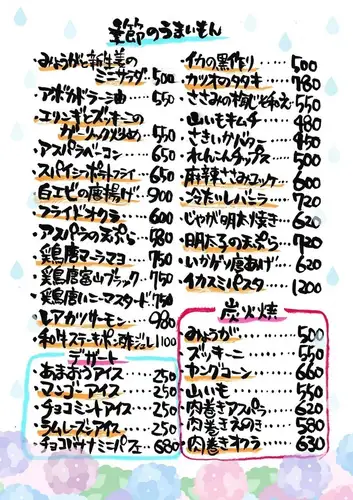 季節のうまいもん
・みょうがと新生姜の
ミニサラダ…500
・アボカドラー油……550
・エリンギとズッキーニの
ガーリック炒め…550
・アスパラベーコン…650
・スパイシーポテトフライ…650
・白エビの唐揚げ…900
・フライドオクラ……600
・アスパラの天ぷら…580
・鶏唐マヨラー…750
・鶏唐富山ブラック…750
・鶏唐ハニーマスタード…750
・レアカツサーモン…980
・和牛ステーキポン酢ジュレ1100
デザート
・あまおうアイス…250
・マンゴーアイス…250
・チョコミントアイス…250
・ラムレーズンアイス…250
・チョコバナナミニパフェ…680
・イカの黒作り……500
・カツオのタタキ…780
・ささみの梅じそ和え…550
・山いもキムチ…480
・さきいかバター…450
・れんこんチップス…500
・麻辣ささみユッケ…600
・冷たいしバニラ…720
・じゃが明太焼き…620
・明たろの天ぷら…720
・いかゲソ唐あげ…620
・イカスミパスタ…1200
炭火焼
・みょうが………500
・ズッキーニ……550
・ヤングコーン…660
・山いも………550
・肉巻きアスパラ…620
・肉巻きえのき…580
・肉巻きオクラ…630